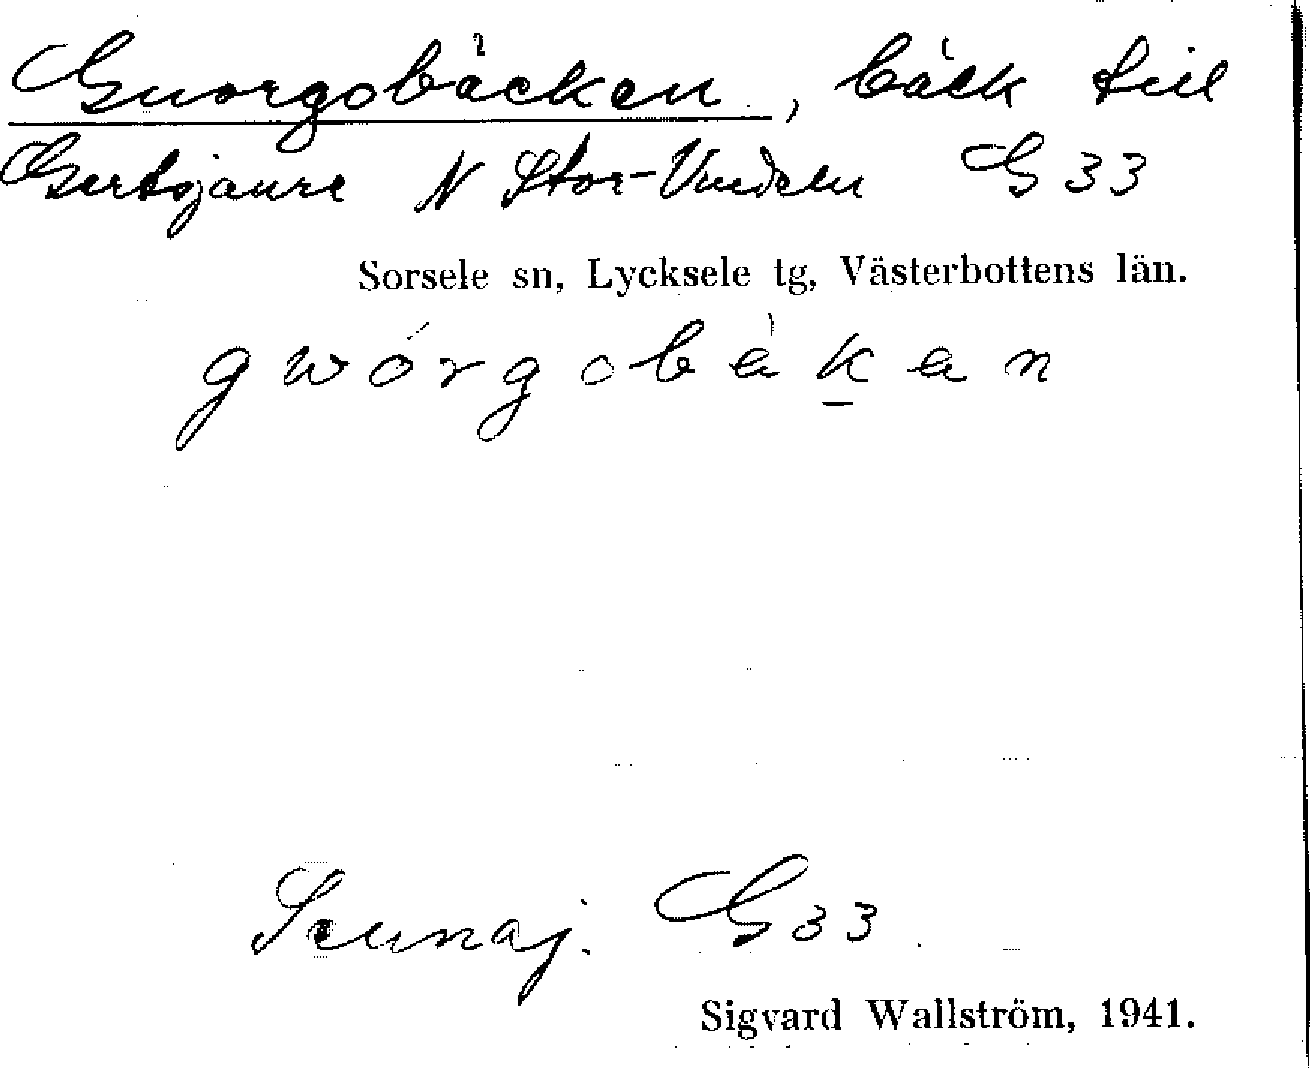 Guorgobäcken, bäck till
Gertsjaure N Stor-Vindeln G 33
Sorsele sn, Lycksele tg, Västerbottens län.
gwórgobäkan
G 33
Sigvard Wallström, 1941.